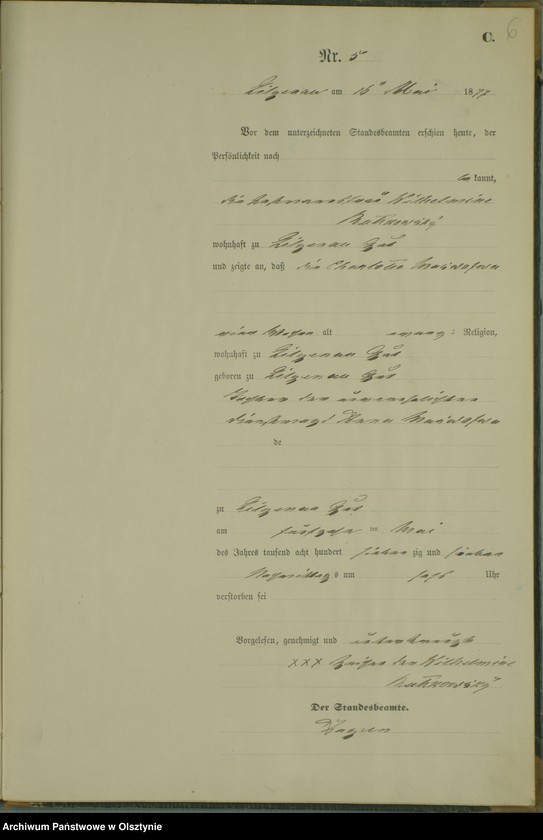 C. 6
Nr. 5
am 16 Mai 1877
Vor dem unterzeichneten Standesbeamten erschien heute, der
Persönlichkeit nach
be kannt,
die Wilhelmine
wohnhaft zu Gut
und zeigte an, daß die Charlotte
vier Wochen alt evang: Religion,
wohnhaft zu Gut
geboren zu Gut
Tochter der unverehelichten
Dienstmagd
de
zu Gut
am fünfzehn ten Mai
des Jahres tausend acht hundert sieben zig und sieben
Nachmittags um sechs Uhr
verstorben sei
Vorgelesen, genehmigt und unterkreuzt
XXX Zeichen der Wilhelmine
Der Standesbeamte.
Archiwum Państwowe w Olsztynie